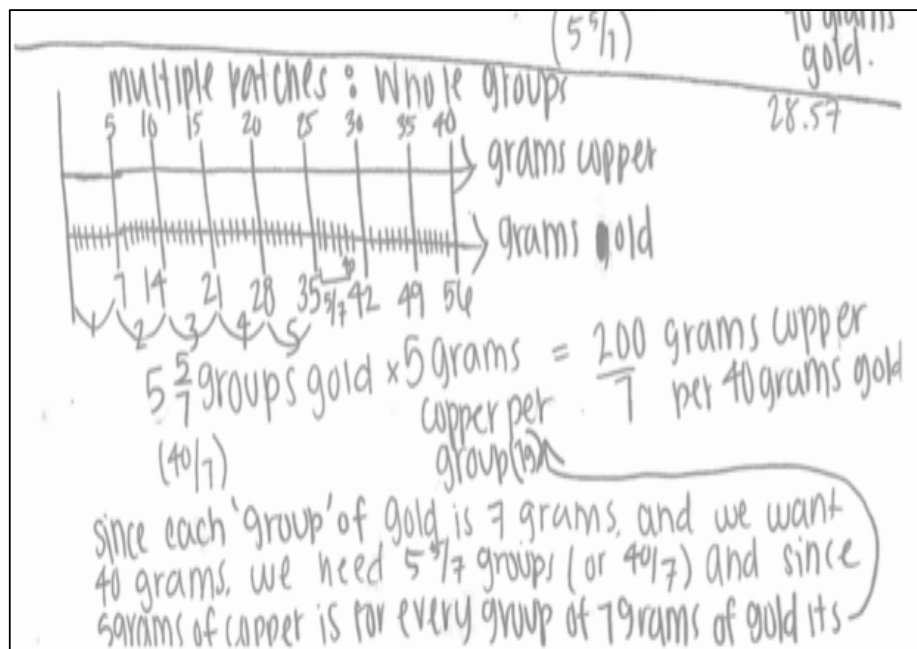 (5 5/7)
gold.
28.57
multiple batches : Whole groups
5 10 15 20 25 30 35 40
grams copper
grams gold
40
7 14 21 28 35 5/7 42 49 56
1 2 3 4 5
5 5/7 groups gold × 5 grams copper per group (7g) = 200/7 grams copper per 40 grams gold
(40/7)
since each 'group' of gold is 7 grams, and we want
40 grams, we need 5 5/7 groups (or 40/7) and since
5grams of copper is for every group of 7grams of gold its